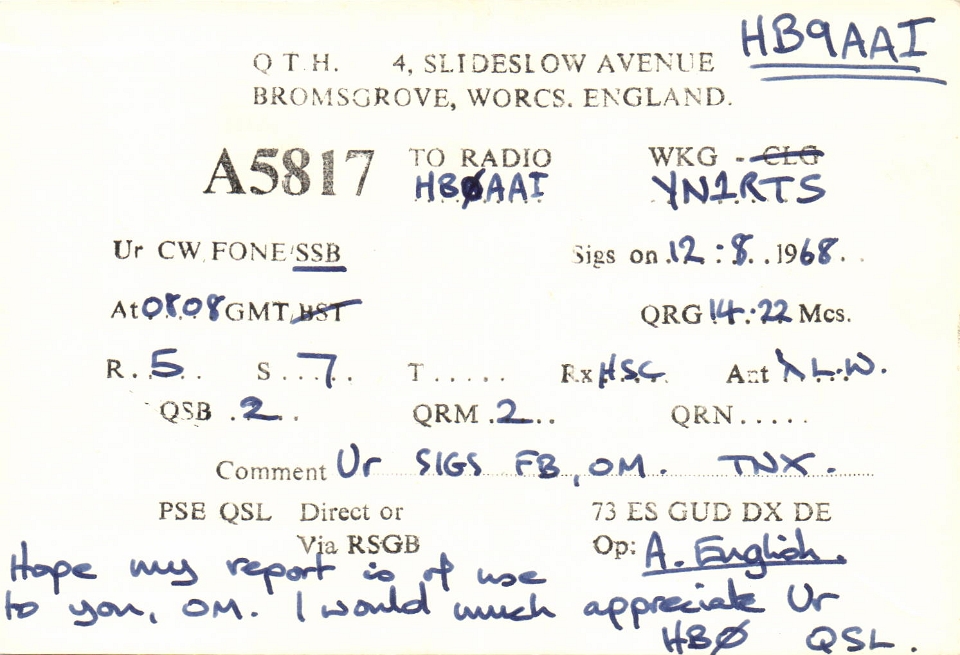 HB9AAI
Q T.H. 4, SLIDESLOW AVENUE
BROMSGROVE, WORCS. ENGLAND.
A5817 TO RADIO WKG - CLG
HBØAAI YN1RTS
Ur CW, FONE/SSB Sigs on 12:8..1968..
At 0808 GMT/BST QRG 14.22 Mcs.
R..5.. S...7.. T..... Rx HSC Ant λ L.W.
QSB .2.. QRM .2.. QRN.....
Comment Ur SIGS FB, OM. TNX.
PSE QSL Direct or 73 ES GUD DX DE
Via RSGB Op: A. English.
Hope my report is of use
to you, OM. I would much appreciate Ur
HBØ QSL.